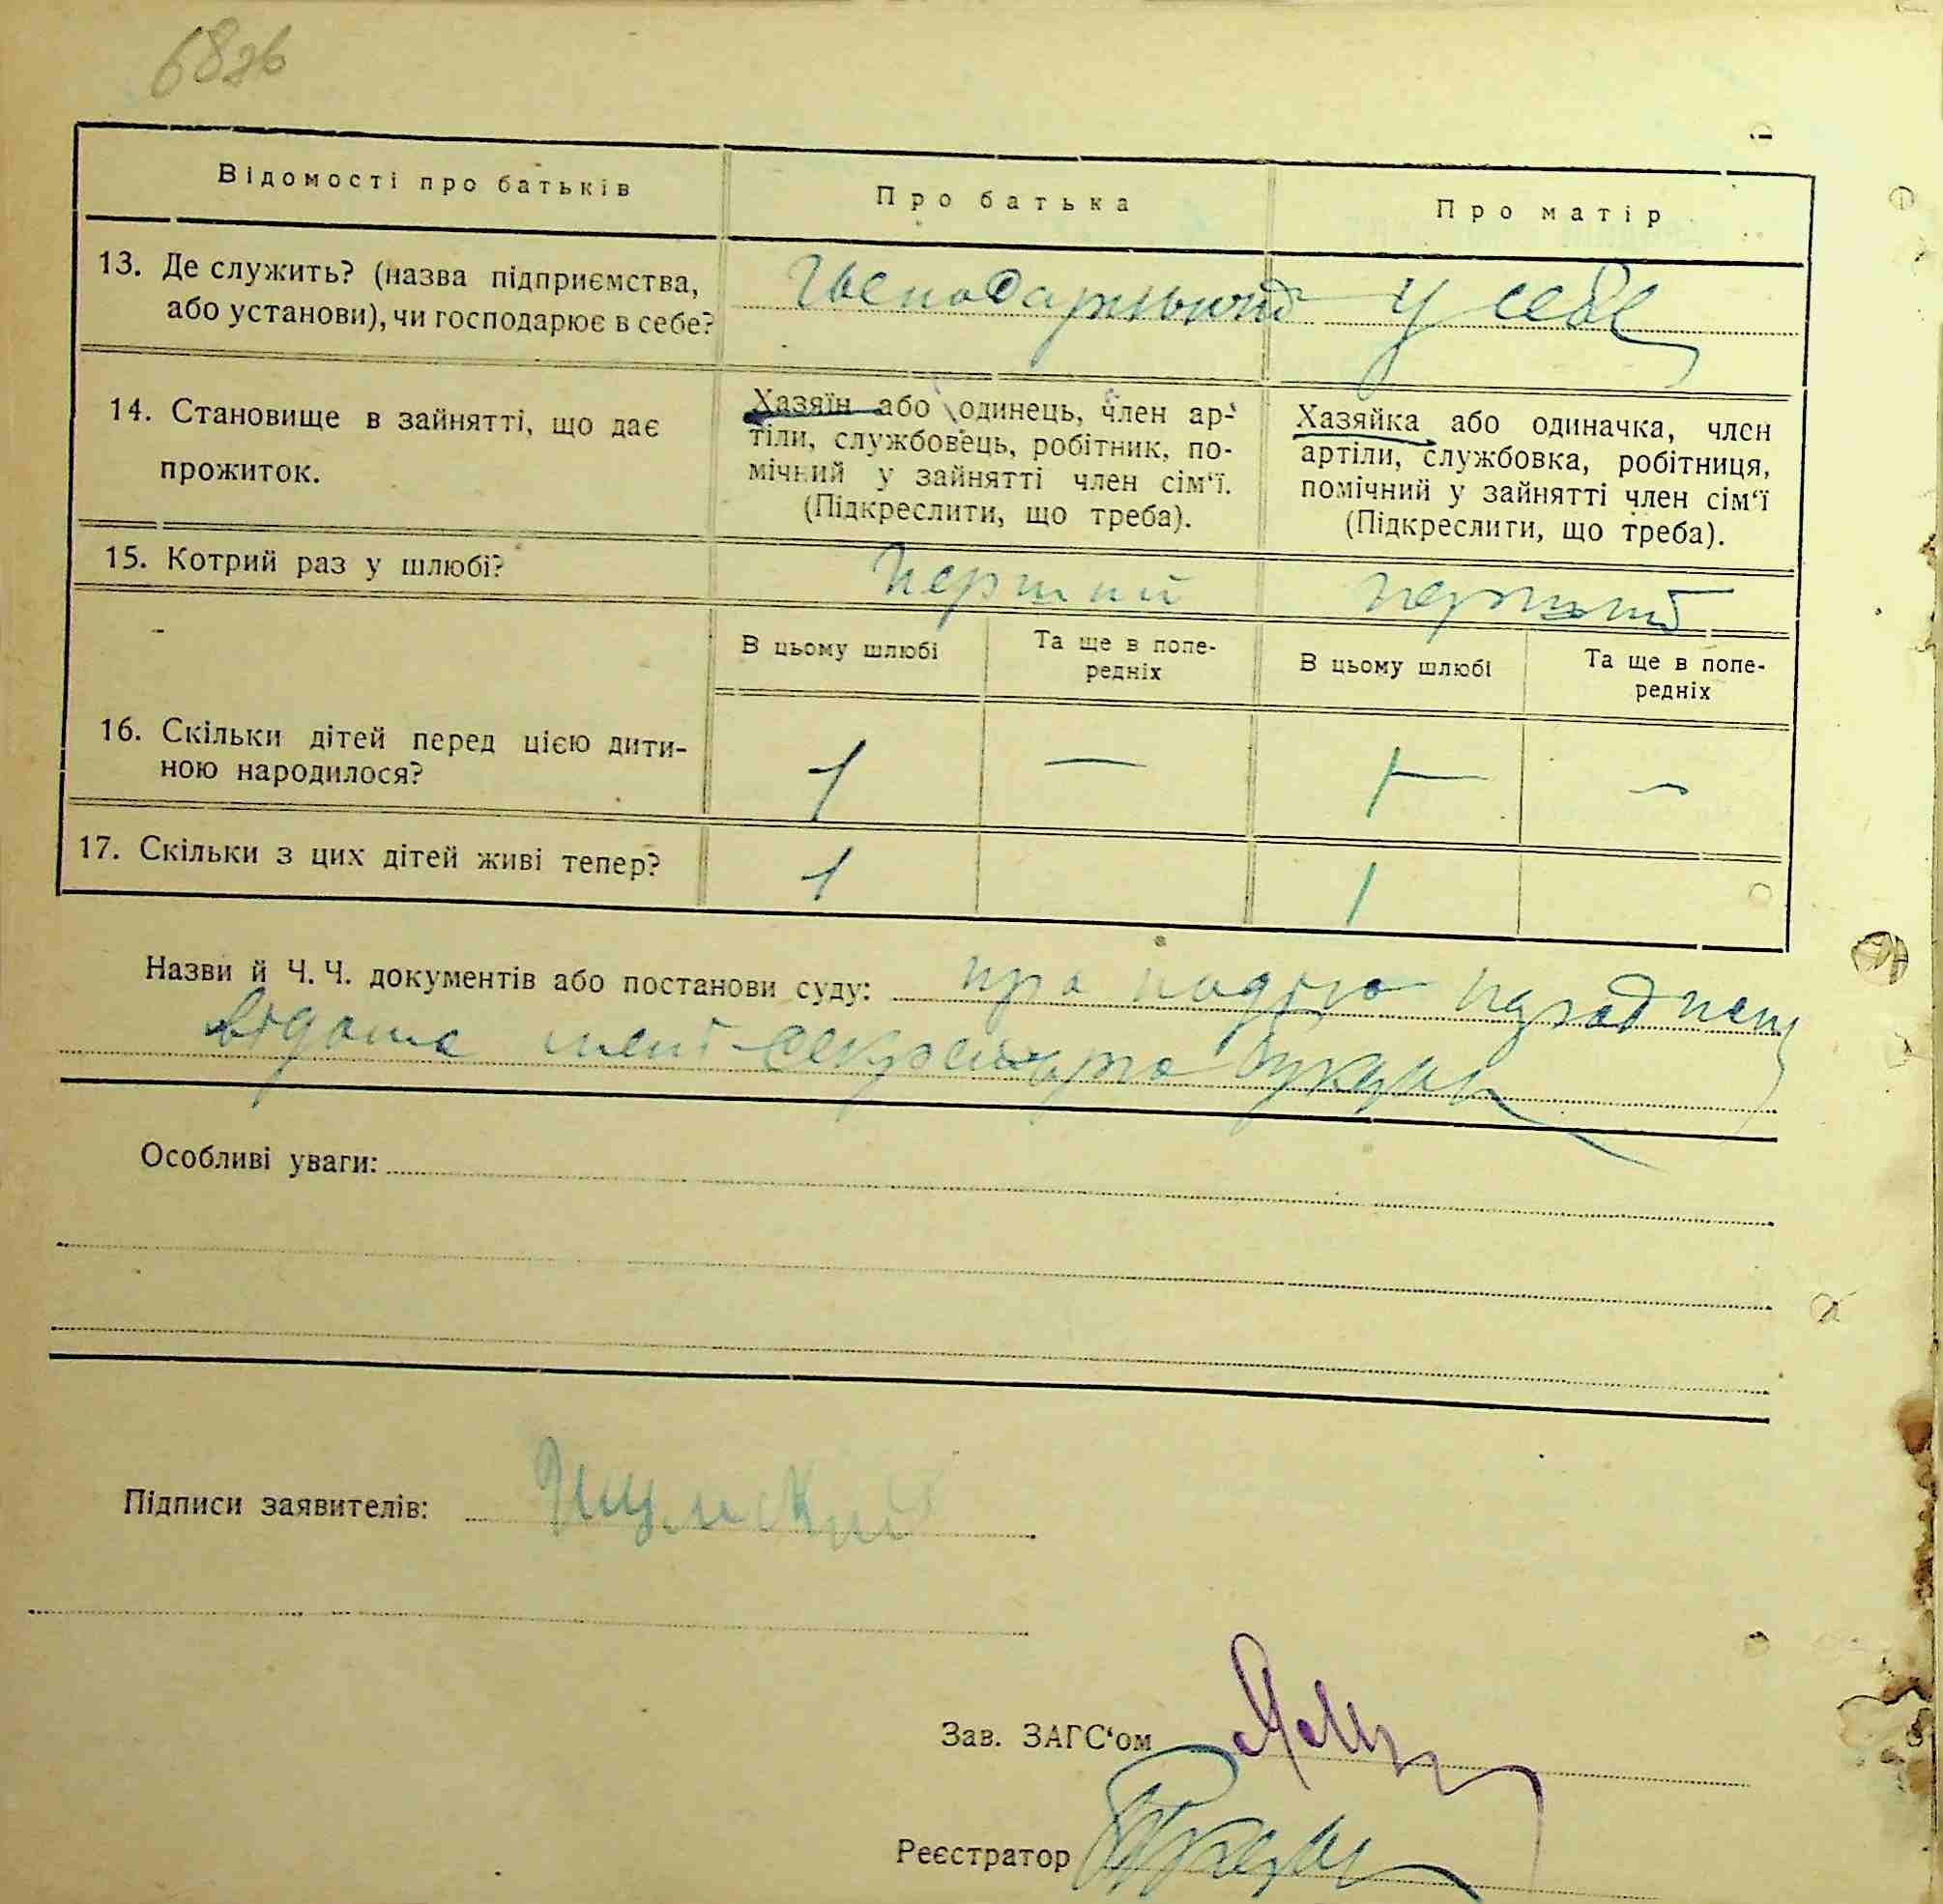 68зв
Відомості про батьків
Про батька
Про матір
13. Де служить? (назва підприємства,
або установи), чи господарює в себе?
у себе
14. Становище в зайнятті, що дає
прожиток.
Хазяїн або одинець, член ар-
тіли, службовець, робітник, по-
мічний у зайнятті член сім'ї.
(Підкреслити, що треба).
Хазяйка або одиначка, член
артіли, службовка, робітниця,
помічний у зайнятті член сім'ї
(Підкреслити, що треба).
15. Котрий раз у шлюбі?
перший
перший
В цьому шлюбі
Та ще в попе-
редніх
В цьому шлюбі
Та ще в попе-
редніх
16. Скільки дітей перед цією дити-
ною народилося?
1 —
1 —
17. Скільки з цих дітей живі тепер?
1
1
Назви й Ч. Ч. документів або постанови суду: про подію
відома мені секретарю
Особливі уваги:
Підписи заявителів:
Зав. ЗАГС'ом
Реєстратор